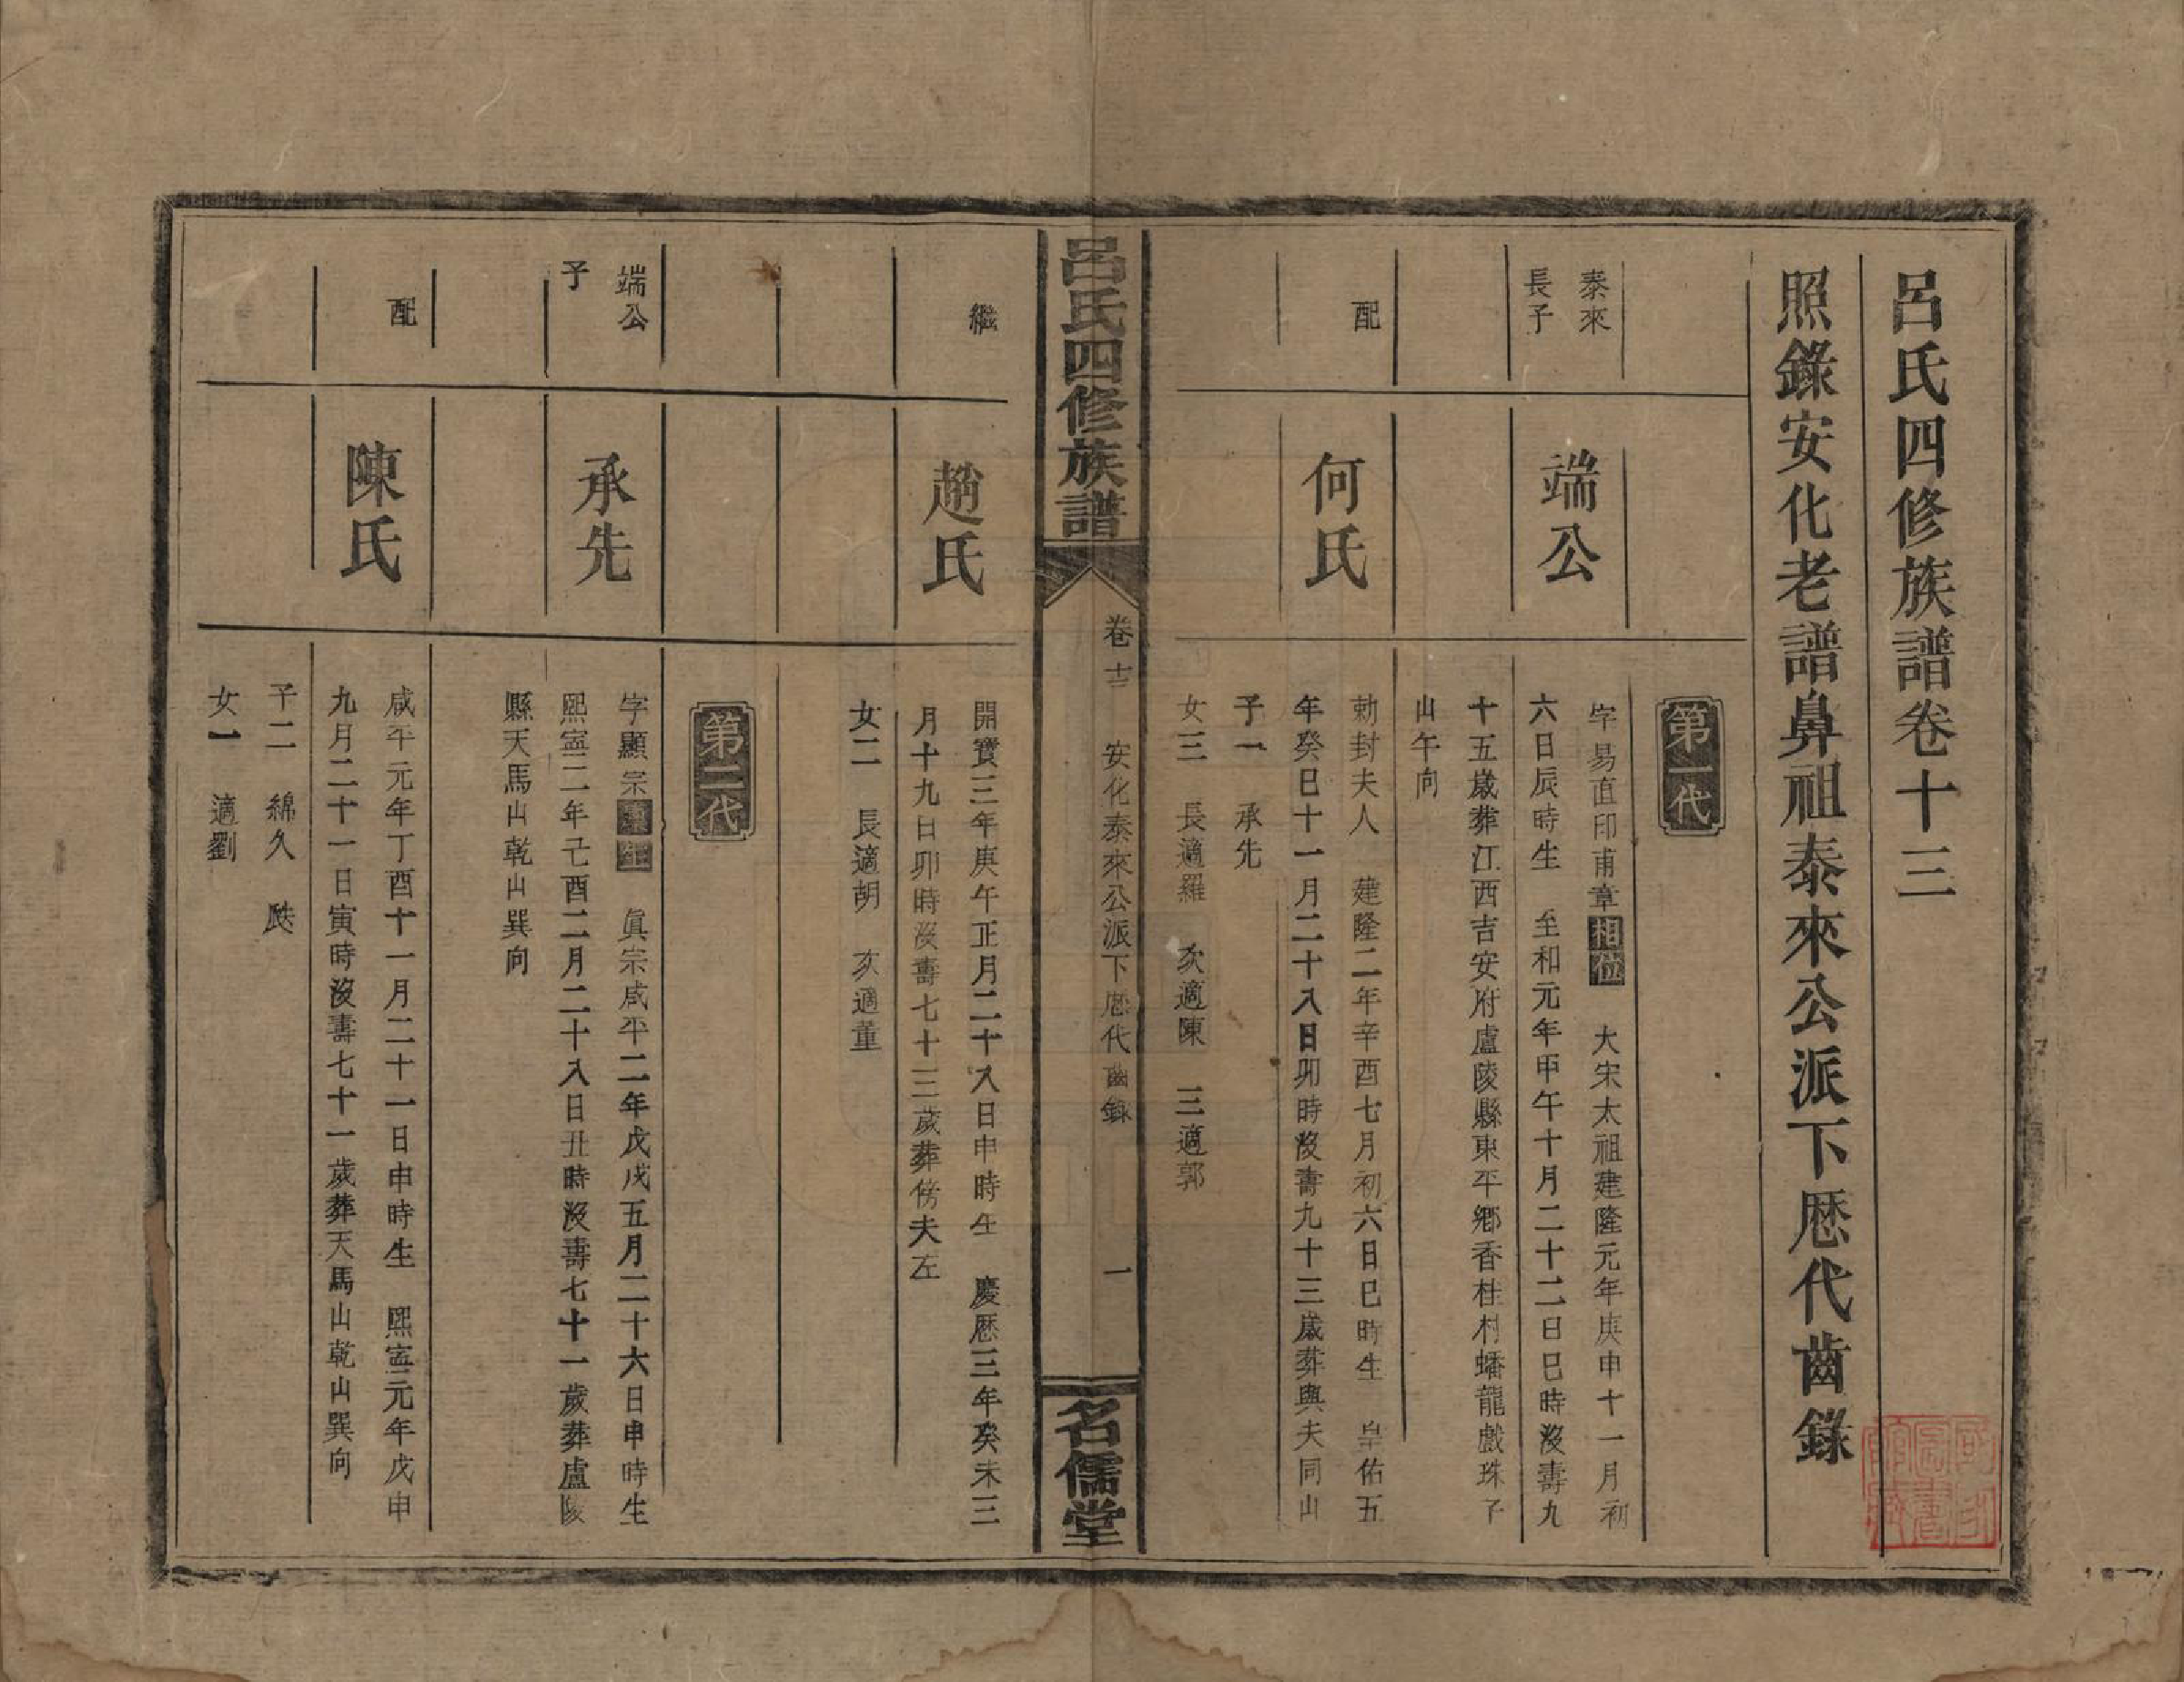 呂氏四修族譜卷十三
照錄安化老譜鼻祖泰來公派下歷代齒錄
第一代
泰來
長子
端公
字易直印甫章相位 大宋太祖建隆元年庚申十一月初
六日辰時生 至和元年甲午十月二十二日巳時沒壽九
十五歲葬江西吉安府盧陵縣東平鄉香桂村蟠龍戲珠子
山午向
配
何氏
勅封夫人 建隆二年辛酉七月初六日巳時生 皇佑五
年癸巳十一月二十八日卯時沒壽九十三歲葬與夫同山
子一 承先
女三 長適羅 次適陳 三適郭
呂氏四修族譜
卷十三 安化泰來公派下歷代齒錄 一
名儒堂
繼
趙氏
開寶三年庚午正月二十八日申時生 慶歷三年癸未三
月十九日卯時沒壽七十三歲葬傍夫左
女二 長適胡 次適董
第二代
端公
子
承先
字顯宗 生 眞宗咸平二年戊戌五月二十六日申時生
熙寧二年己酉二月二十八日丑時沒壽七十一歲葬盧陵
縣天馬山乾山巽向
配
陳氏
咸平元年丁酉十一月二十一日申時生 熙寧元年戊申
九月二十一日寅時沒壽七十一歲葬天馬山乾山巽向
子二 綿久 瓞
女一 適劉